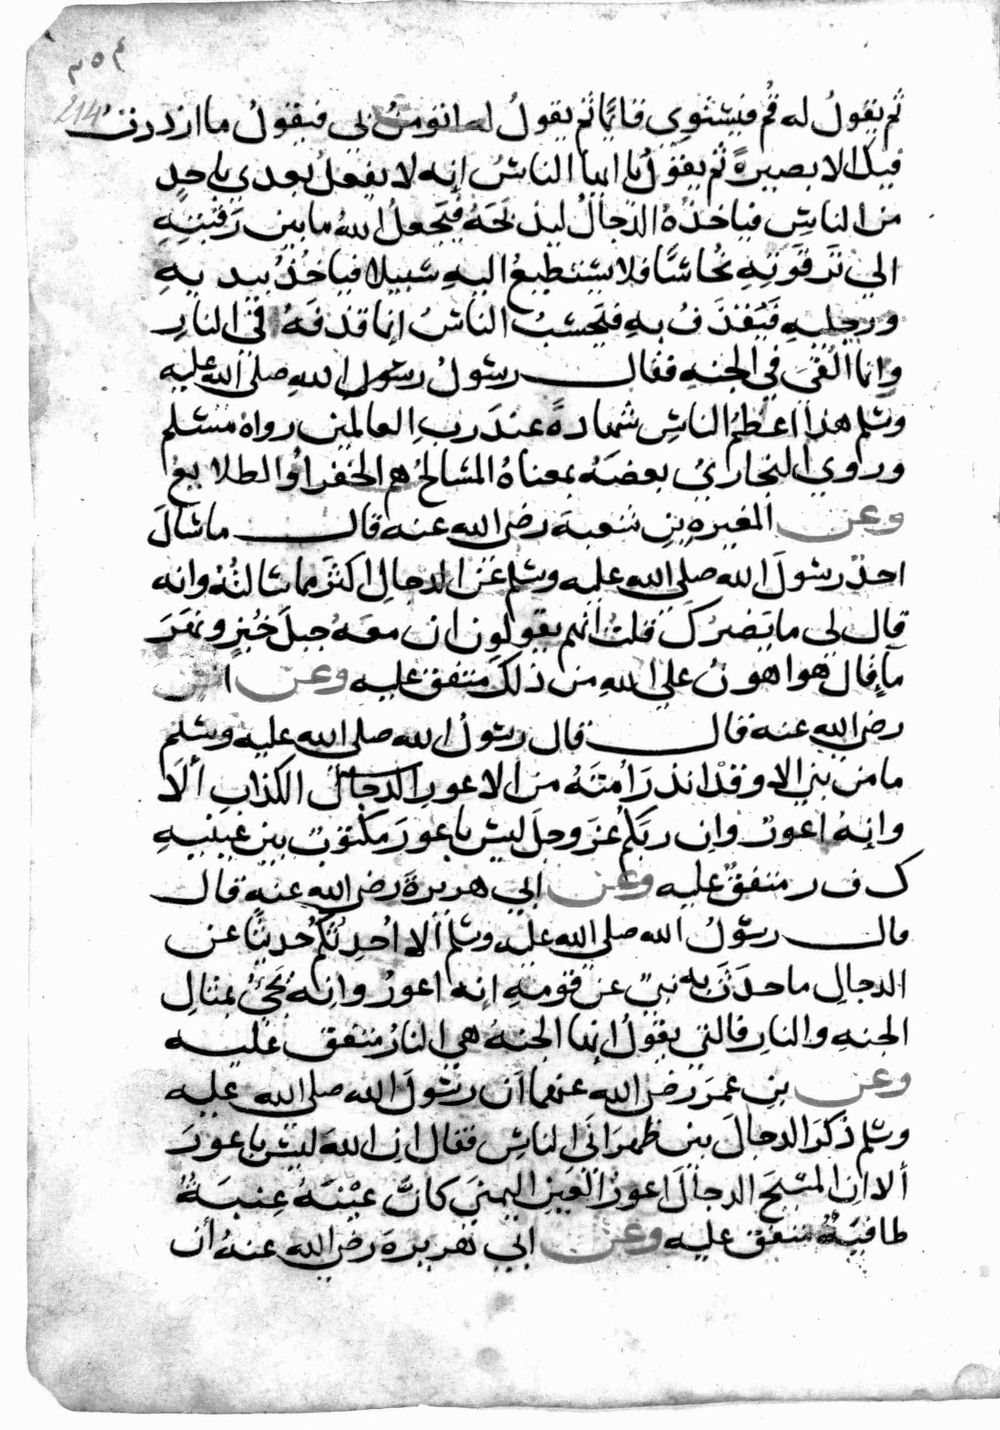 ٣٥٤
214
ثم يقولُ له قُم فيستوِي قائمًا ثم يقولُ له اتومنُ بي فيقولُ ما ازددتُ
فيك الا بصيرةً ثم يقولُ يا ايها الناسُ إنه لا يفعلُ بعدي باحدٍ
من الناسِ فياخذهُ الدجالُ ليذبحَهُ فيَجعلُ اللهُ ما بين رَقبتِهِ
الي تَرقُوَتِهِ نُحاسًا فلا يستطيعُ اليهِ سبيلا فياخُذُ بيديهِ
ورجليهِ فَيَقذفُ بهِ فيحسبُ الناسُ إنما قذفَهُ في النارِ
وانما القىَ في الجنهِ فقال رسولُ رسول اللهِ صلى الله عليه
وسلم هذا اعظمُ الناسِ شهادةً عندَ ربِ العالمين رواهُ مسلم
وروي البخاريُ بعضَهُ بمعناهُ المسالحُ هم الخفراُ والطلايعُ
وعن المغيرهِ بنِ شعبةَ رضي الله عنه قال ما سالَ
احدٌ رسولَ الله صلى الله عليه وسلم عَن الدجالِ اكثرَ مما سالتُهُ وانه
قال لي ما يَضركَ قلتُ انهم يقولون ان معَهُ جبلَ خُبزٍ ونهَرَ
ماٍ قال هو اهونُ على اللهِ من ذلك متفق عليه وعن انس
رضي الله عنه قال قال رسولُ الله صلى الله عليه وسلم
ما من نبيٍ الا وقد انذرَ أمتَهُ من الاعورِ الدجال الكذابِ ألا
وإنهُ اعورُ وان ربكم عزَ وجلَ ليس باعورَ مكتوبٌ بين عينيهِ
ك ف ر متفقٌ عليه وعن ابي هريرةَ رضي الله عنه قال
قال رسولُ الله صلى الله عليه وسلم ألا اُحدِثكُم حديثًا عن
الدجالِ ما حدثَ به نبيٌ عن قومِهِ إنه اعورُ وانهُ يَجئُ بمثالِ
الجنهِ والنارِ فالتي يقولُ إنها الجنهُ هي النارُ متفق عليه
وعن بنِ عمرَ رضي الله عنهما أن رسولَ الله صلى الله عليه
وسلم ذكرَ الدجالَ بين ظهرَاني الناسِ فقال ان اللهَ ليس باعورَ
ألا ان المسيحَ الدجالَ اعورُ العينِ اليمنىَ كانَّ عينَهُ عِنبَةٌ
طافيَةٌ متفق عليه وعن ابي هريرةَ رضي الله عنهُ أن